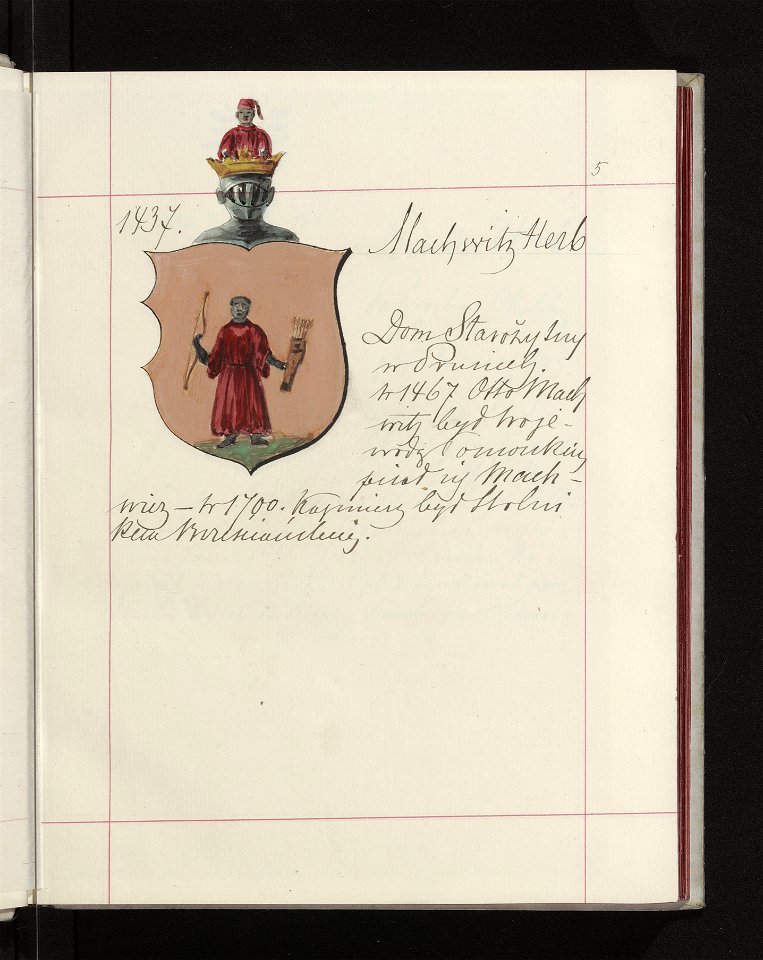 5
1437.
Machwitz Herb
Dom Starożytny
w Prusiech.
w 1467 Otto Mach
witz był woje-
wódz
pisał się Mach-
wicz – w 1700. Kazimierz był Stolni
kem